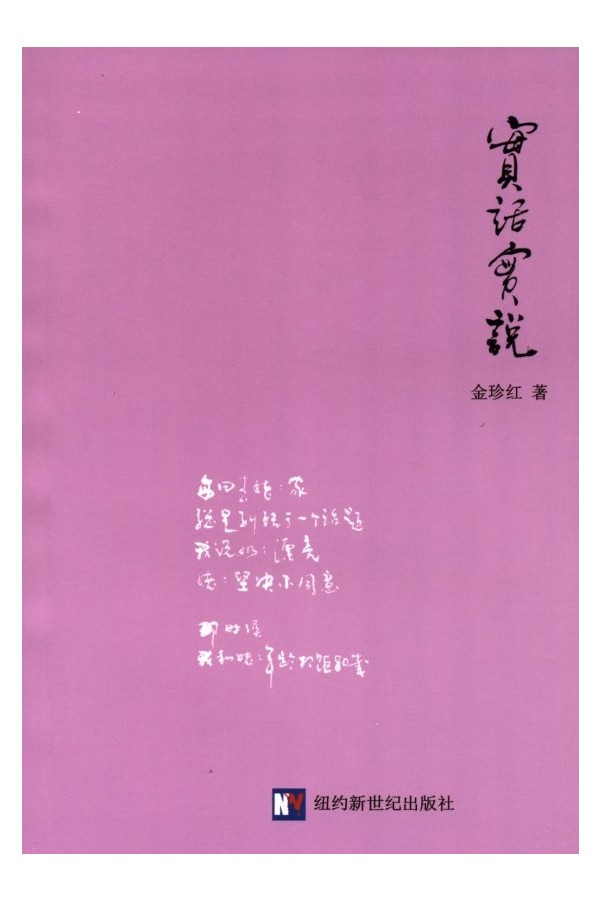 實話實說
金珍红 著
每回去 家
总是纠缠于一个话题
我说奶:漂亮
坚决不同意
那时候
我和 年龄相距80岁
NW 纽约新世纪出版社